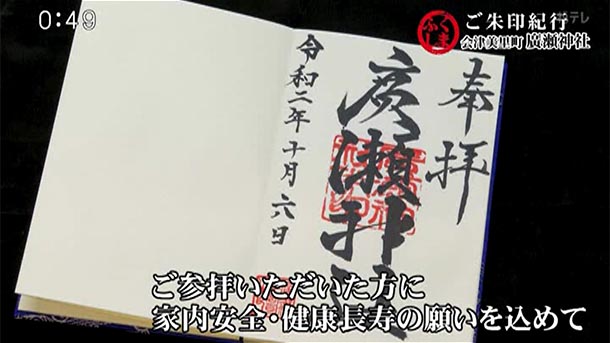 0:49
ふくしま
ご朱印紀行
会津美里町 廣瀬神社
奉拝
廣瀬神社
令和二年十月六日
ご参拝いただいた方に
家内安全・健康長寿の願いを込めて